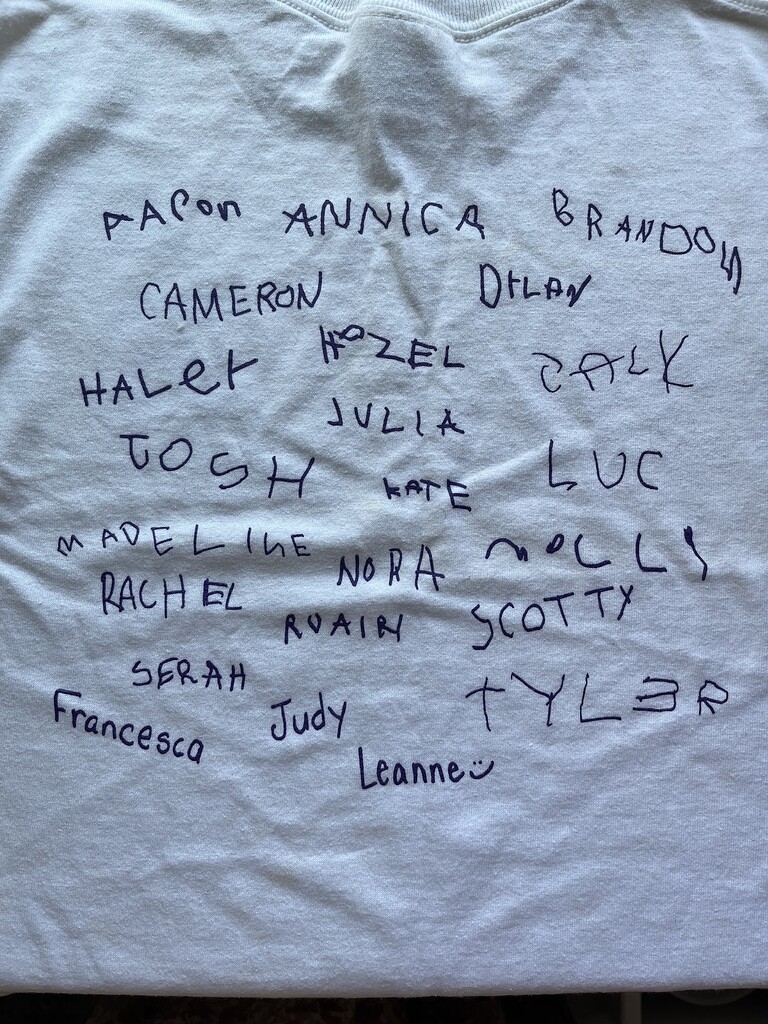 AARON ANNICA BRANDON
CAMERON DYLAN
HALEY HAZEL JACK
JULIA
JOSH KATE LUC
MADELINE NORA MOLLY
RACHEL RUAIRI SCOTTY
SERAH TYLER
Francesca Judy
Leanne